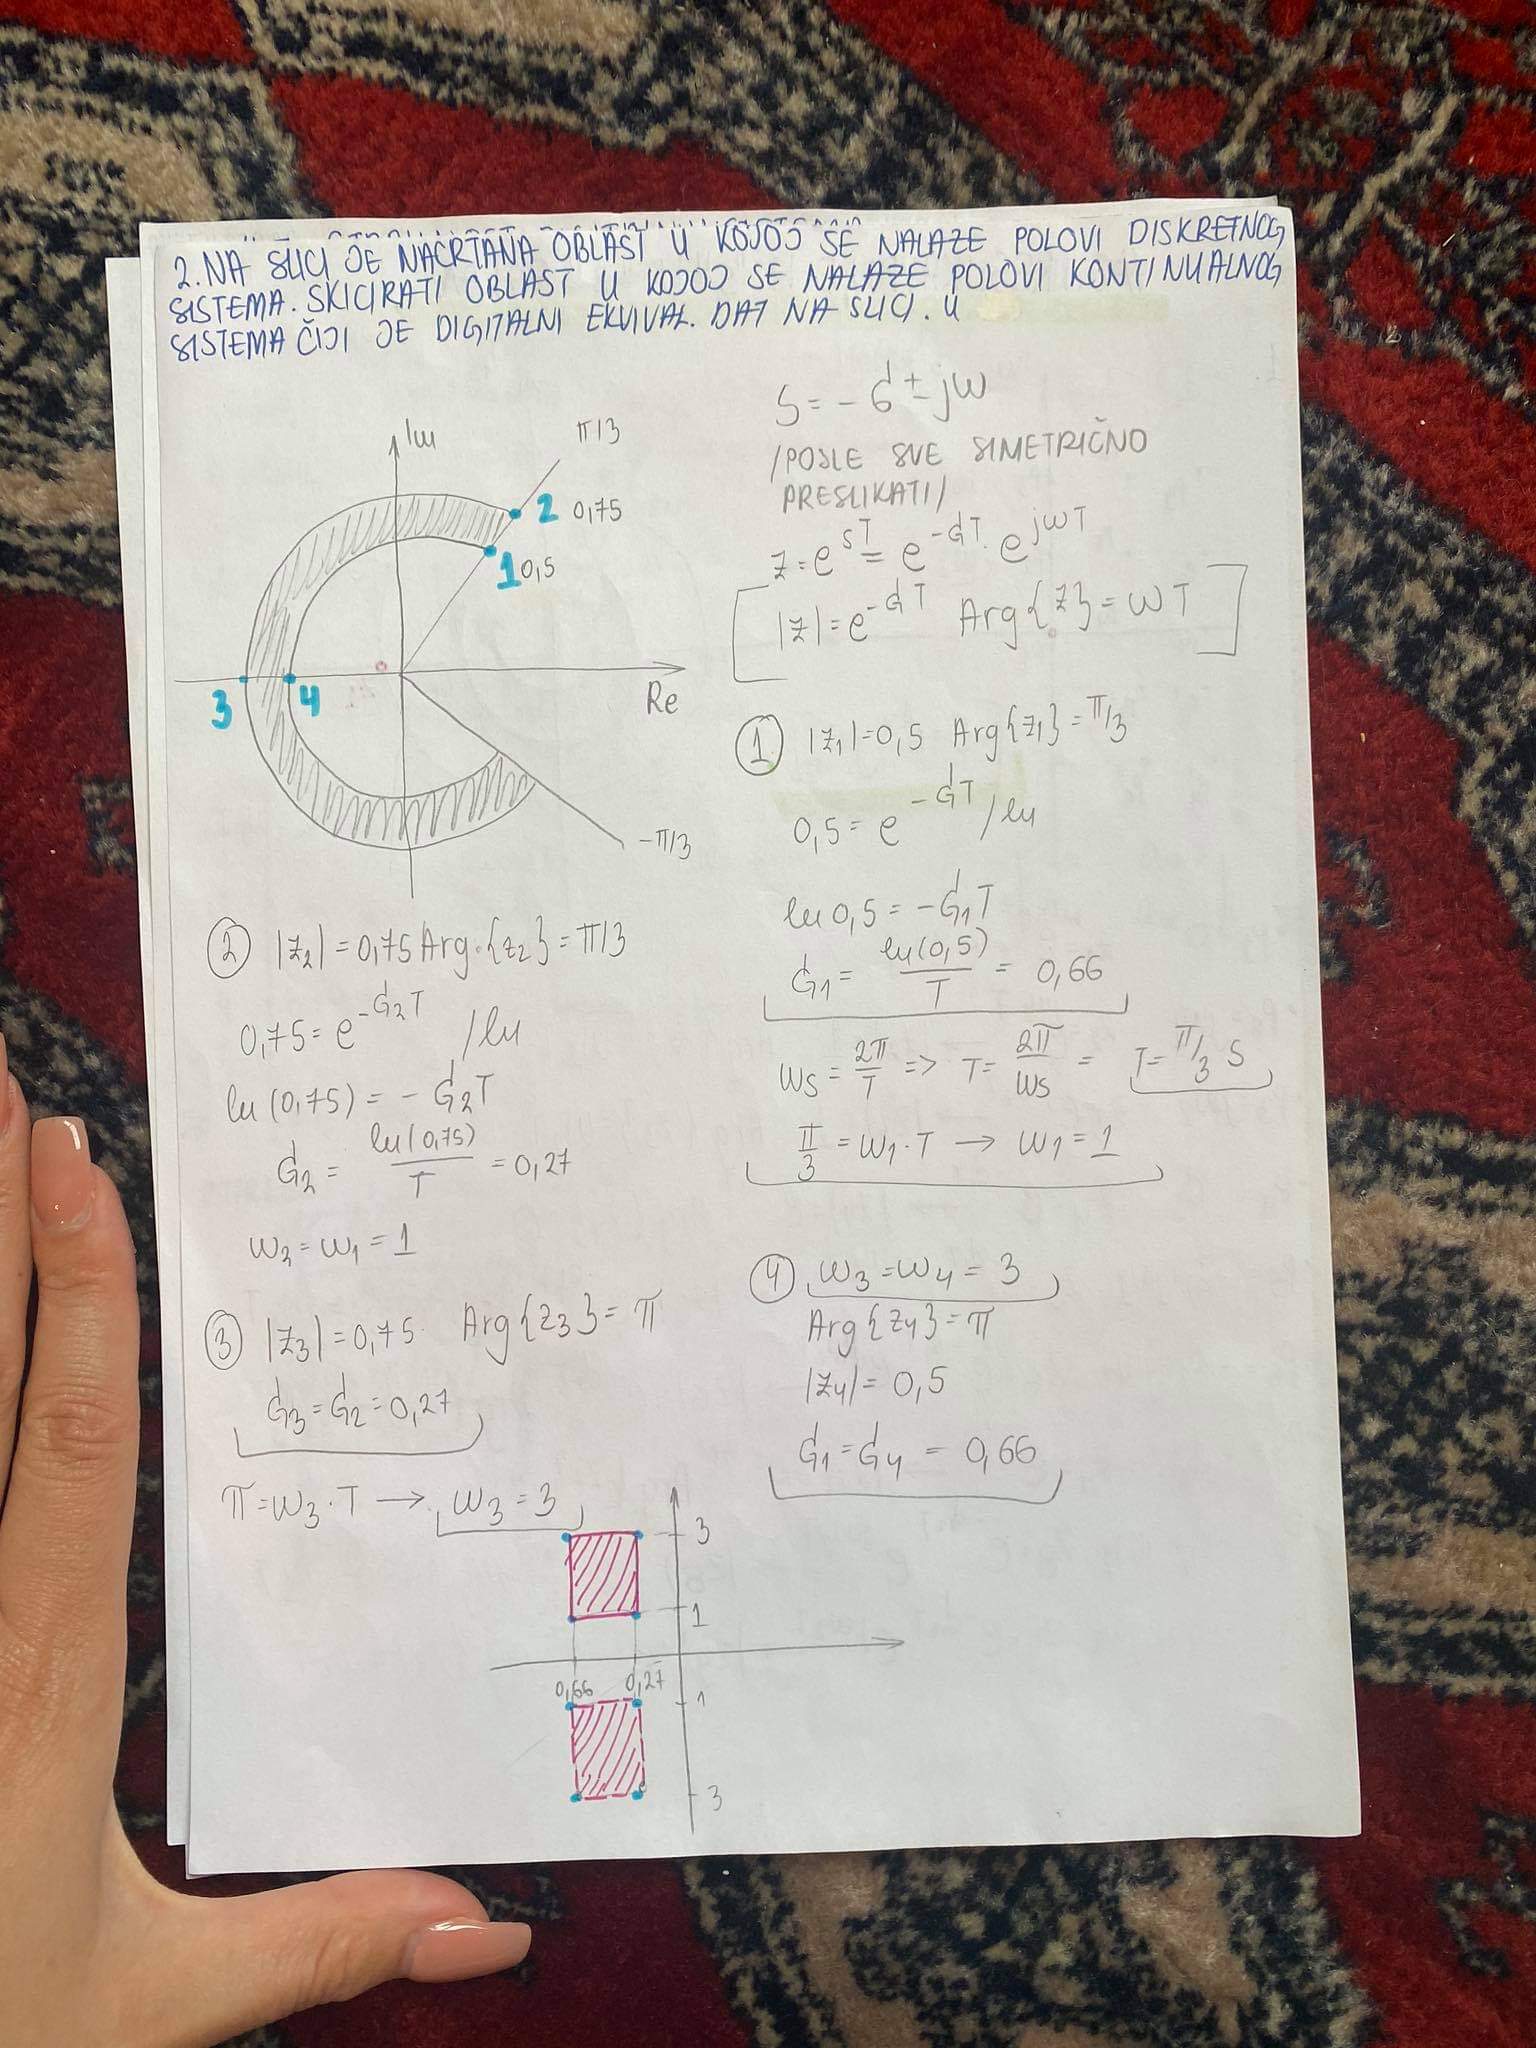 2. NA SLICI JE NACRTANA OBLAST U KOJOJ SE NALAZE POLOVI DISKRETNOG
SISTEMA. SKICIRATI OBLAST U KOJOJ SE NALAZE POLOVI KONTINUALNOG
SISTEMA ČIJI JE DIGITALNI EKVIVAL. DAT NA SLICI. U
S = - σ ± jω
/POSLE SVE SIMETRIČNO
PRESLIKATI/
z = e^{sT} = e^{-σT} · e^{jωT}
|z| = e^{-σT} Arg{z} = ωT
Im
π/3
2 0,75
1 0,5
3 4
Re
-π/3
① |z₁| = 0,5 Arg{z₁} = π/3
0,5 = e^{-σT} / ln
ln 0,5 = -σ₁T
σ₁ = ln(0,5)/T = 0,66
ωs = 2π/T => T = 2π/ωs = T = π/3 s
π/3 = ω₁ · T → ω₁ = 1
② |z₂| = 0,75 Arg{z₂} = π/3
0,75 = e^{-σ₂T} / ln
ln(0,75) = - σ₂T
σ₂ = ln(0,75)/T = 0,27
ω₂ = ω₁ = 1
③ |z₃| = 0,75 Arg{z₃} = π
σ₃ = σ₂ = 0,27
π = ω₃ · T → ω₃ = 3
④ ω₃ = ω₄ = 3
Arg{z₄} = π
|z₄| = 0,5
σ₁ = σ₄ = 0,66
3
1
0,66 0,27
1
3